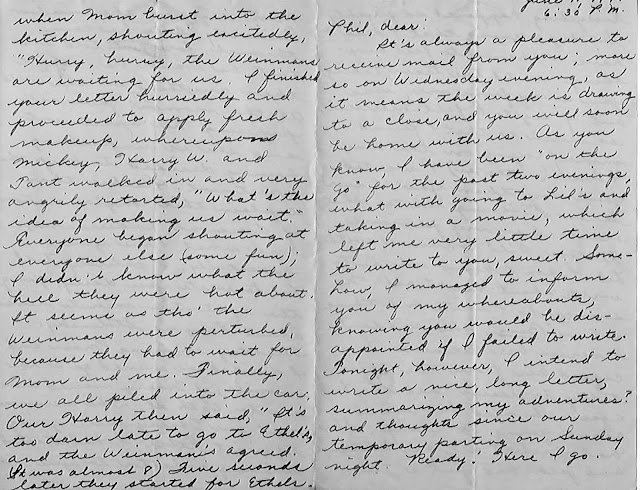 when Mom burst into the
kitchen, shouting excitedly,
"Hurry, hurry, the Weinmans
are waiting for us. I finished
your letter hurriedly and
proceeded to apply fresh
makeup, whereupon
Mickey, Harry W. and
Tant walked in and very
angrily retorted, "What's the
idea of making us wait."
Everyone began shouting at
everyone else (some fun);
I didn't know what the
hell they were hot about.
It seems as tho' the
Weinmans were perturbed,
because they had to wait for
Mom and me. Finally,
we all piled into the car.
Our Harry then said, "It's
too darn late to go to Ethel's,
and the Weinman's agreed.
(It was almost 8) Five seconds
later they started for Ethels.
June
6:30 P.M.
Phil, dear:
It's always a pleasure to
receive mail from you; more
so on Wednesday evening, as
it means the week is drawing
to a close, and you will soon
be home with us. As you
know, I have been "on the
go" for the past two evenings,
what with going to Lil's and
taking in a movie, which
left me very little time
to write to you, sweet. Some-
how, I managed to inform
you of my whereabouts,
knowing you would be dis-
appointed if I failed to write.
Tonight, however, I intend to
write a nice, long letter,
summarizing my adventures?
and thoughts since our
temporary parting on Sunday
night. Ready? Here I go.